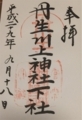 奉拝
丹生川上神社下社
平成二九年九月十八日